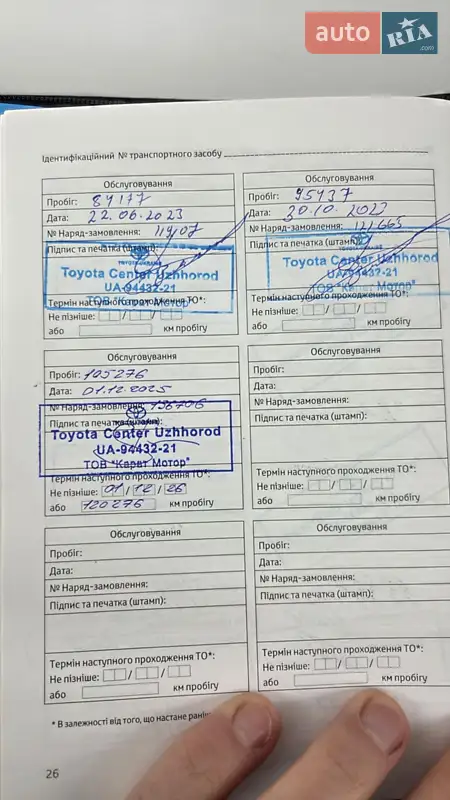 auto RIA .com
Ідентифікаційний № транспортного засобу
Обслуговування
Пробіг: 84177
Дата: 22.06.2023
№ Наряд-замовлення:
Підпис та печатка (штамп):
Toyota Center Uzhhorod
UA-94432-21
ТОВ "Карат Мотор"
Термін наступного проходження ТО*:
Не пізніше: / /
або км пробігу
Обслуговування
Пробіг: 95437
Дата: 30.10.2023
№ Наряд-замовлення: 121663
Підпис та печатка (штамп)
Toyota Center Uzhhorod
UA-94432-21
ТОВ "Карат Мотор"
Термін наступного проходження ТО*:
Не пізніше: / /
або км пробігу
Обслуговування
Пробіг: 105276
Дата: 01.12.2025
№ Наряд-замовлення: 136706
Підпис та печатка (штамп):
Toyota Center Uzhhorod
UA-94432-21
ТОВ "Карат Мотор"
Термін наступного проходження ТО*:
Не пізніше: 01 / 12 / 26
або 120276 км пробігу
Обслуговування
Пробіг:
Дата:
№ Наряд-замовлення:
Підпис та печатка (штамп):
Термін наступного проходження ТО*:
Не пізніше: / /
або км пробігу
Обслуговування
Пробіг:
Дата:
№ Наряд-замовлення:
Підпис та печатка (штамп):
Термін наступного проходження ТО*:
Не пізніше: / /
або км пробігу
Обслуговування
Пробіг:
Дата:
№ Наряд-замовлення:
Підпис та печатка (штамп):
Термін наступного проходження ТО*:
Не пізніше: / /
або км пробігу
* В залежності від того, що настане
26